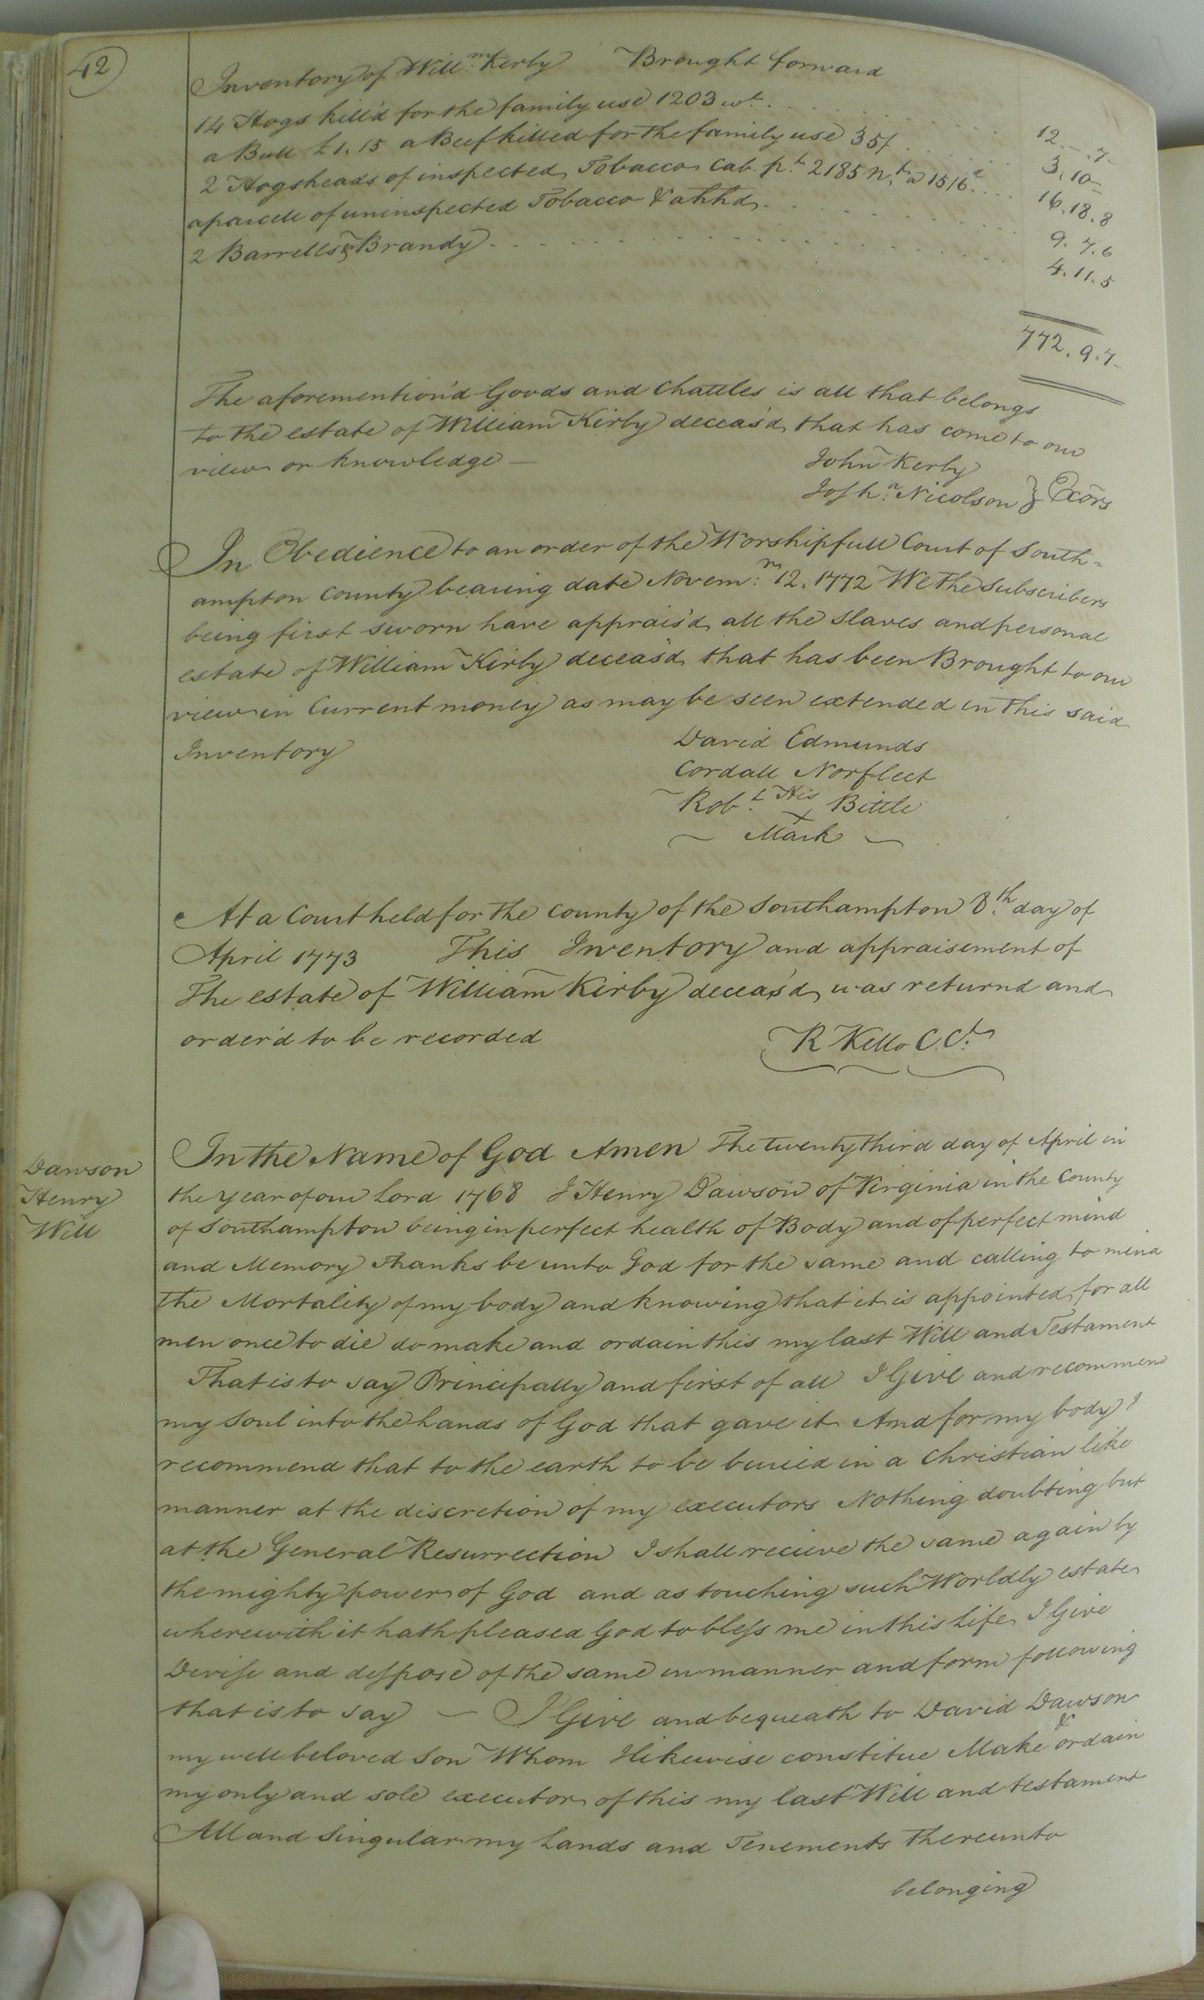 42
Inventory of Will.m Kerby Brought forward
14 Hogs kill'd for the family use 1203 wt. 12.–.7
a Bull £1.15 a Beef killed for the family use 35/ 3.10–
2 Hogsheads of inspected Tobacco Cab. p.t 2185 n.t a 15/6 16.18.8
a parcell of uninspected Tobacco & a hhd. 9.7.6
2 Barrells & Brandy 4.11.5
772.9.7
The aforemention'd Goods and Chattles is all that belongs
to the estate of William Kirby deceas'd that has come to our
view or knowledge —
John Kerby
Josh.a Nicolson } Exōrs
In Obedience to an order of the Worshipfull Court of South=
ampton County bearing date Novem.m 12. 1772 We the Subscribers
being first sworn have apprais'd all the Slaves and personal
estate of William Kirby deceas'd that has been Brought to our
view in Current money as may be seen extended in this said
Inventory
David Edmunds
Cordall Norfleet
Rob.t His Bittle
X
Mark
At a Court held for the county of the Southampton 8.th day of
April 1773 This Inventory and appraisement of
The estate of William Kirby deceas'd was returnd and
order'd to be recorded
R Kello C.Ct.
Dawson
Henry
Will
In the Name of God Amen The twenty third day of April in
the year of our Lord 1768 I Henry Dawson of Virginia in the County
of Southampton being in perfect health of Body and of perfect mind
and Memory thanks be unto God for the same and calling to mind
the Mortality of my body and knowing that it is appointed for all
men once to die do make and ordain this my last Will and Testament
That is to say Principally and first of all I Give and recommend
my Soul into the hands of God that gave it And for my body I
recommend that to the earth to be buried in a Christian like
manner at the discretion of my executors Nothing doubting but
at the General Resurrection I shall recieve the same again by
the mighty power of God and as touching such Worldly estate
wherewith it hath pleased God to bless me in this life I Give
Devise and dispose of the same in manner and form following
that is to say — I Give and bequeath to David Dawson
my well beloved Son Whom I likewise constitue Make & ordain
my only and sole executor of this my last Will and testament
All and Singular my Lands and Tenements thereunto
belonging